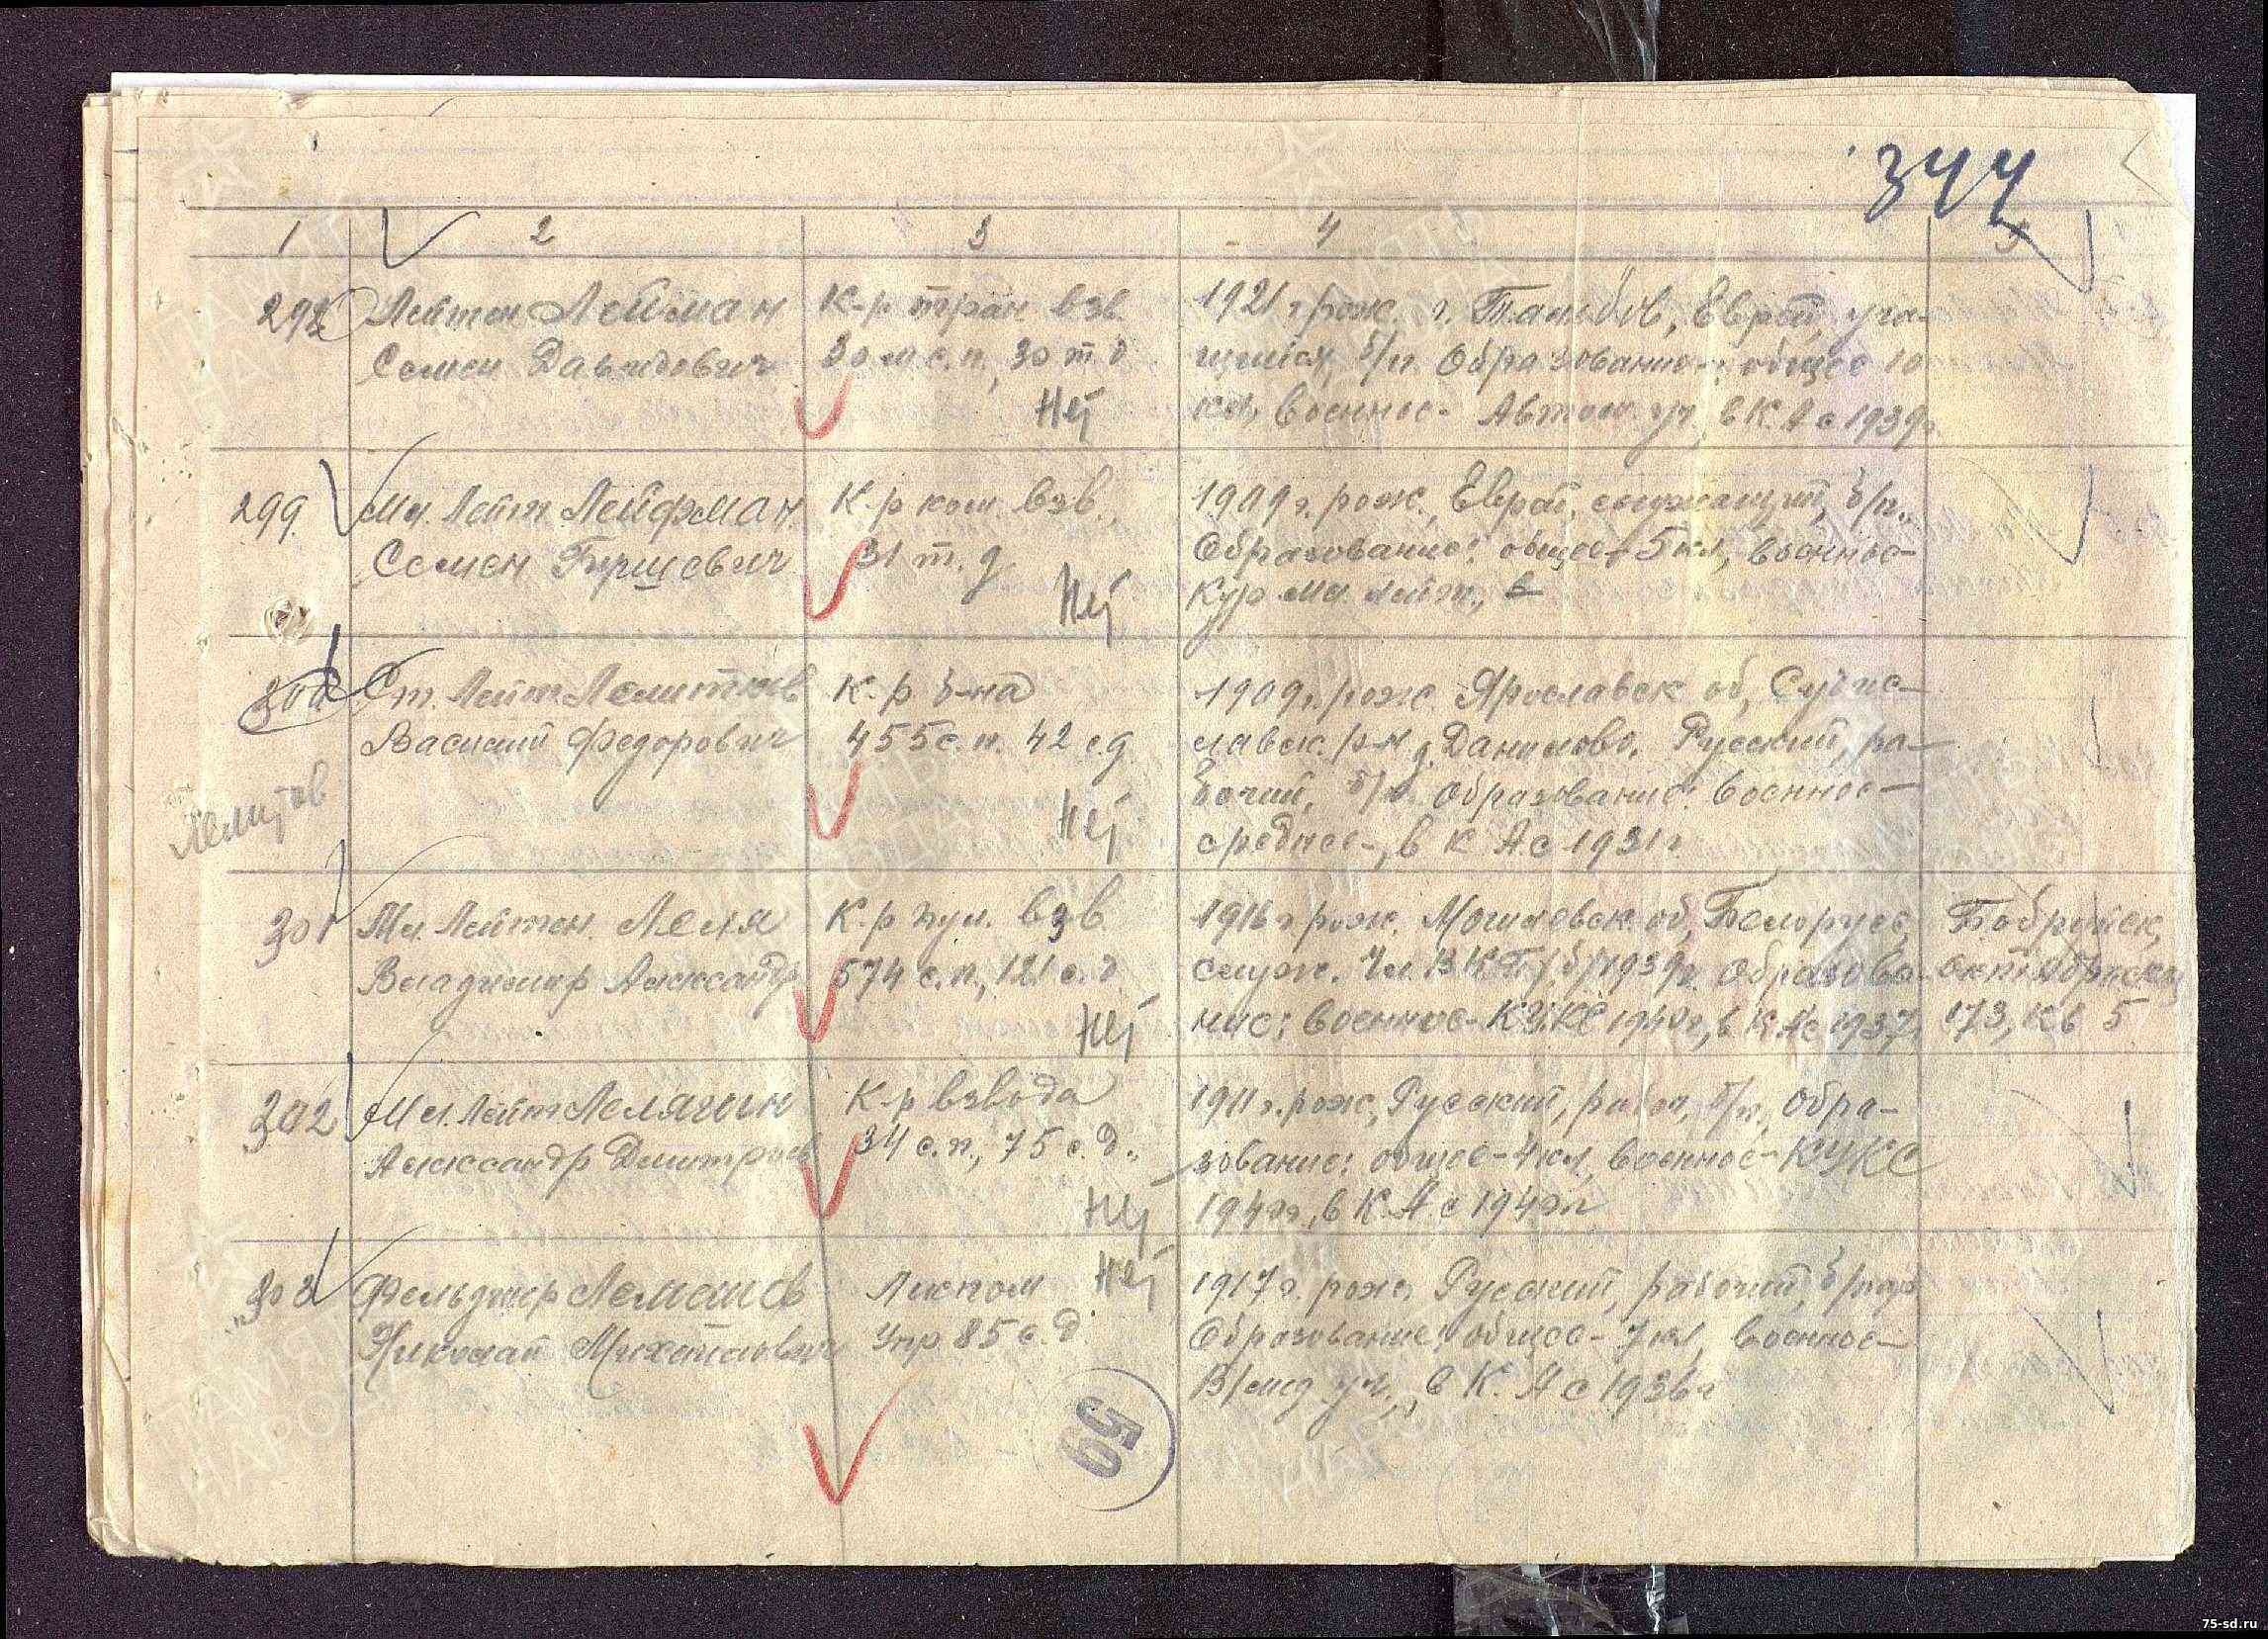 344
1 2 3 4 5
298 Лейтен Лейман
Семен Давидович
К-р тран взв
30 м.с.п., 30 т д
Нет
1921 г рож. г. Тамбов, Еврей, уча-
щийся, б/п. Образование: общее 10
кл, военное - Автом. уч, в К.А с 1939г
299. Мл. Лейт. Лейфман
Семен Гиршевич
К-р ком. взв.,
31 т. д
Нет
1909 г. рож., Еврей, служащий, б/п.,
Образование: общее - 5 кл, военное -
Кур мл. лейт., в
300 Ст. Лейт Лемитков
Василий Федорович
Лемитов
К-р б-на
455 с.п. 42 с.д.
Нет
1909 г. рож. Ярославск об,
славск. р-н д. Данилово. Русский, ра-
бочий, б/п. Образование: военное -
среднее -, в К А с 1931 г
301 Мл. Лейтен. Леля
Владимир Александр
К-р пул. взв
574 с.п., 121 с. д
Нет
1916 г рож. Могилевск. об, Белорусс,
служ. Чл. ВКП/б/1939г. Образова-
ние: военное - КУКС 1940г, в К.А с 1937
Бобруйск,
октябрьская
173, кв 5
302 Мл. Лейт Лелягин
Александр Дмитриев
К-р взвода
34 с.п., 75 с. д.
Нет
1911 г. рож, Русский, рабоч, б/п, Обра-
зование: общее - 4 кл, военное - КУКС
1940г., в К.А. с 1940г
303 Фельдшер Лемешов
Николай Михайлович
Нет
Упр 85 с. д
1917 г. рож. Русский, рабочий,
Образование: общее - 7 кл, военное -
В/мед уч., в К. А с 1936г
59
ПАМЯТЬ
НАРОДА
75-sd.ru